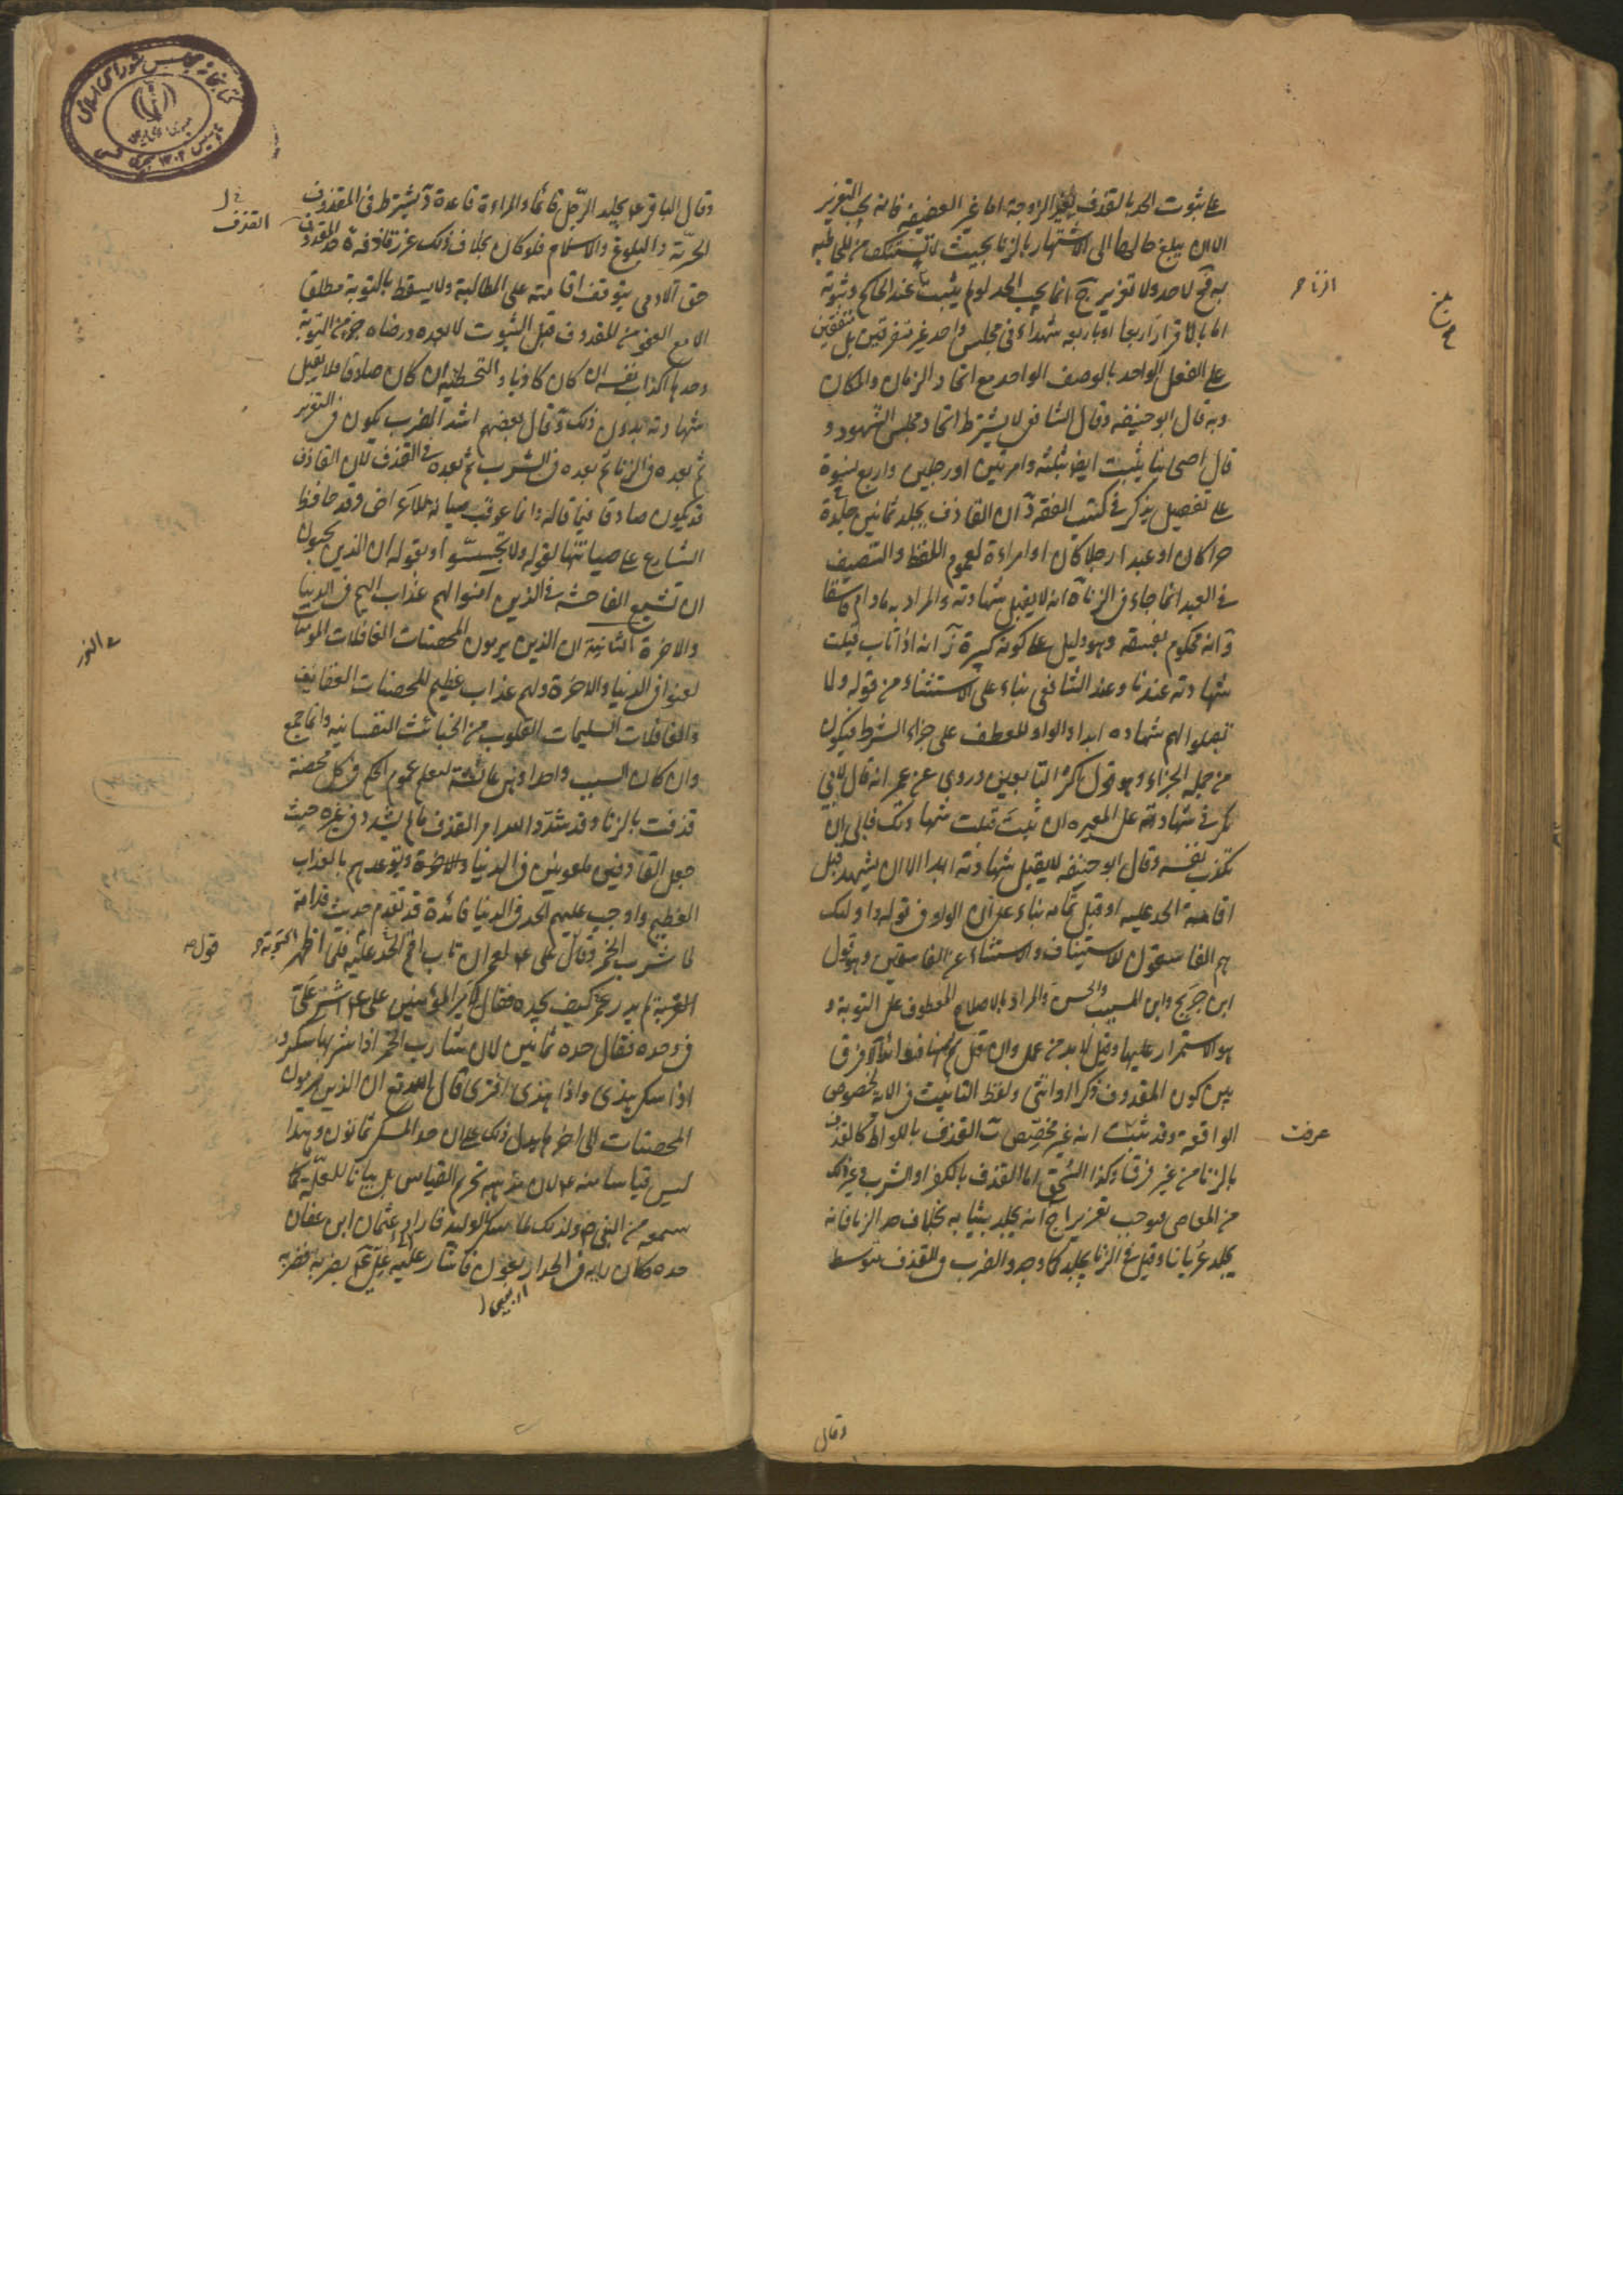 على ثبوت الحد بالقذف لغير الزوجة اما غير العفيفة فانه يجب التعزير
الا ان يبلغ حالها الى الاشتهار بالزنا بحيث لا تستنكف من المخاطبة
به فح لا حد ولا تعزير ج انما يجب الحد لو لم يثبت عند الحاكم وثبوته
اما بالاقرار اربعا او باربعة شهداء في مجلس واحد غير متفرقين بل متفقين
على الفعل الواحد بالوصف الواحد مع اتحاد الزمان والمكان
وبه قال ابو حنيفه وقال الشافعي لا يشترط اتحاد مجلس الشهود و
قال اصحابنا يثبت ايضا بثلثة وامرتين او رجلين واربع نسوة
على تفصيل يذكر في كتب الفقه د ان القاذف يجلد ثمانين جلدة
حرا كان او عبدا رجلا كان او امراءة لعموم اللفظ والتنصيف
في العبد انما جاء في الزنا ه انه لا يقبل شهادته والمراد به مادام فاسقا
و انه محكوم بفسقه وهو دليل على كونه كبيرة ز انه اذا تاب قبلت
شهادته عندنا وعند الشافعي بناء على الاستثناء من قوله ولا
تقبلوا لهم شهاده ابدا والواو للعطف على جزاء الشرط فيكون
من جملة الجزاء وهو قول اكثر التابعين وروى عن عمر انه قال لابي
بكر في شهادته على المغيره ان تبت قبلت شهادتك فابى ان
يكذب نفسه وقال ابو حنيفه لا يقبل شهادته ابدا الا ان يشهد قبل
اقامة الحد عليه او قبل تمامه بناء على ان الواو في قوله واولئك
هم الفاسقون للاستيناف والاستثناء عن الفاسقين وهو قول
ابن جريج وابن المسيب والحسن والمراد بالاصلاح المعطوف على التوبة و
هو الاستمرار عليها وقيل لا بد من عمل وان قل
بين كون المقذوف ذكرا او انثى ولفظ التانيث في الاية لخصوص
الواقعة وقد ثبت انه غير مخصص ط القذف باللواط كالقذف
بالزنا من غير فرق وكذا السحق اما القذف بالكفر او الشرب وغير ذلك
من المعاصي فيوجب تعزيرا انه يجلد بثيابه بخلاف حد الزنا فانه
يجلد عريانا وقيل في الزنا يجلد كما وجد والضرب في القذف متوسط
الزنا خ
بلغ
عرفت
وقال
وقال الباقر ع يجلد الرجل قائما والمراءة قاعدة يشترط في المقذوف
الحرية والبلوغ والاسلام فلو كان بخلاف ذلك عزر قاذفه حد المقذوف
حق الادمي يتوقف اقامته على المطالبة ولا يسقط بالتوبة مطلقا
الا مع العفو من المقذوف قبل الثبوت لا بعده ورضاه جزء من التوبة
وحدها اكذاب نفسه ان كان كاذبا و التخطئة ان كان صادقا فلا يقبل
شهادته بدون ذلك وقال بعضهم اشد الضرب يكون في التعزير
ثم بعده في الزنا ثم بعده في الشرب ثم بعده في القذف لان القاذف
قد يكون صادقا فيما قاله وانما عوقب صيانة للاعراض وقد حافظ
الشارع على صيانتها لقوله ولا تجسسوا وبقوله ان الذين يحبون
ان تشيع الفاحشة في الذين امنوا لهم عذاب اليم في الدنيا
والاخرة الثانية ان الذين يرمون المحصنات الغافلات المومنات
لعنوا في الدنيا والاخرة ولهم عذاب عظيم المحصنات العفائف
والغافلات السليمات القلوب من الخبائث النفسانيه وانما جمع
وان كان السبب واحدا وهي عائشة ليعلم عموم الحكم في كل محصنة
قذفت بالزنا وقد شدد الله امر القذف ما لم يشدد في غيره حيث
جعل القاذفين ملعونين في الدنيا والاخرة وتوعدهم بالعذاب
العظيم واوجب عليهم الحد في الدنيا فائدة قد تقدم حديث قدامة
لما شرب الخمر وقال على ع لعمر ان تاب اقم الحد عليه فلما اظهر التوبة
التوبة لم يدر عمر كيف يحده فقال لامير المؤمنين على ع اشر على
في حده فقال حده ثمانين لان شارب الخمر اذا شربها سكر و
اذا سكر هذى واذا هذى افترى قال الله تع ان الذين يرمون
المحصنات الى اخرها فدل ذلك على ان حد المسكر ثمانون وهذا
ليس قياسا منه ع لان مذهبه تحريم القياس بل بيانا للعلة كما
سمعه من النبي ص ولذلك لما سكر الوليد فاراد عثمان ابن عفان
حده وكان رايه في الحد اربعون فاشار عليه على ع بضربه فضربه
اربعين
في
القذف
في النور
قوله